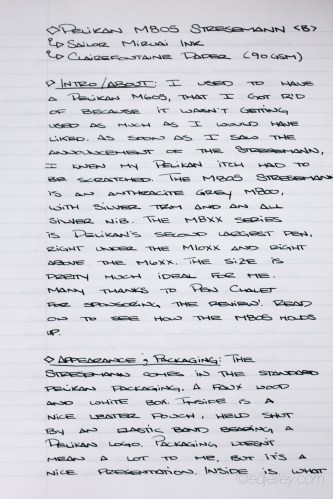 ◇ Pelikan M805 Stresemann <B>
↳ Sailor Miruai Ink
↳ Clairefontaine Paper (90gsm)
▷ Intro/About: I used to have
a Pelikan M605, that I got rid
of because it wasn't getting
used as much as I would have
liked. As soon as I saw the
announcement of the Stresemann,
I knew my Pelikan itch had to
be scratched. The M805 Stresemann
is an anthracite grey M800,
with silver trim and an all
silver nib. The M8XX series
is Pelikan's second largest pen,
right under the M10XX and right
above the M6XX. The size is
pretty much ideal for me.
Many thanks to Pen Chalet
for sponsoring the review! Read
on to see how the M805 holds
up.
◇ Appearance & Packaging: The
Stresemann comes in the standard
Pelikan packaging. A faux wood
and white box. Inside is a
nice leater pouch, held shut
by an elastic band bearing a
Pelikan logo. Packaging doesn't
mean a lot to me, but it's a
nice presentation. Inside is what
©edjelley.com